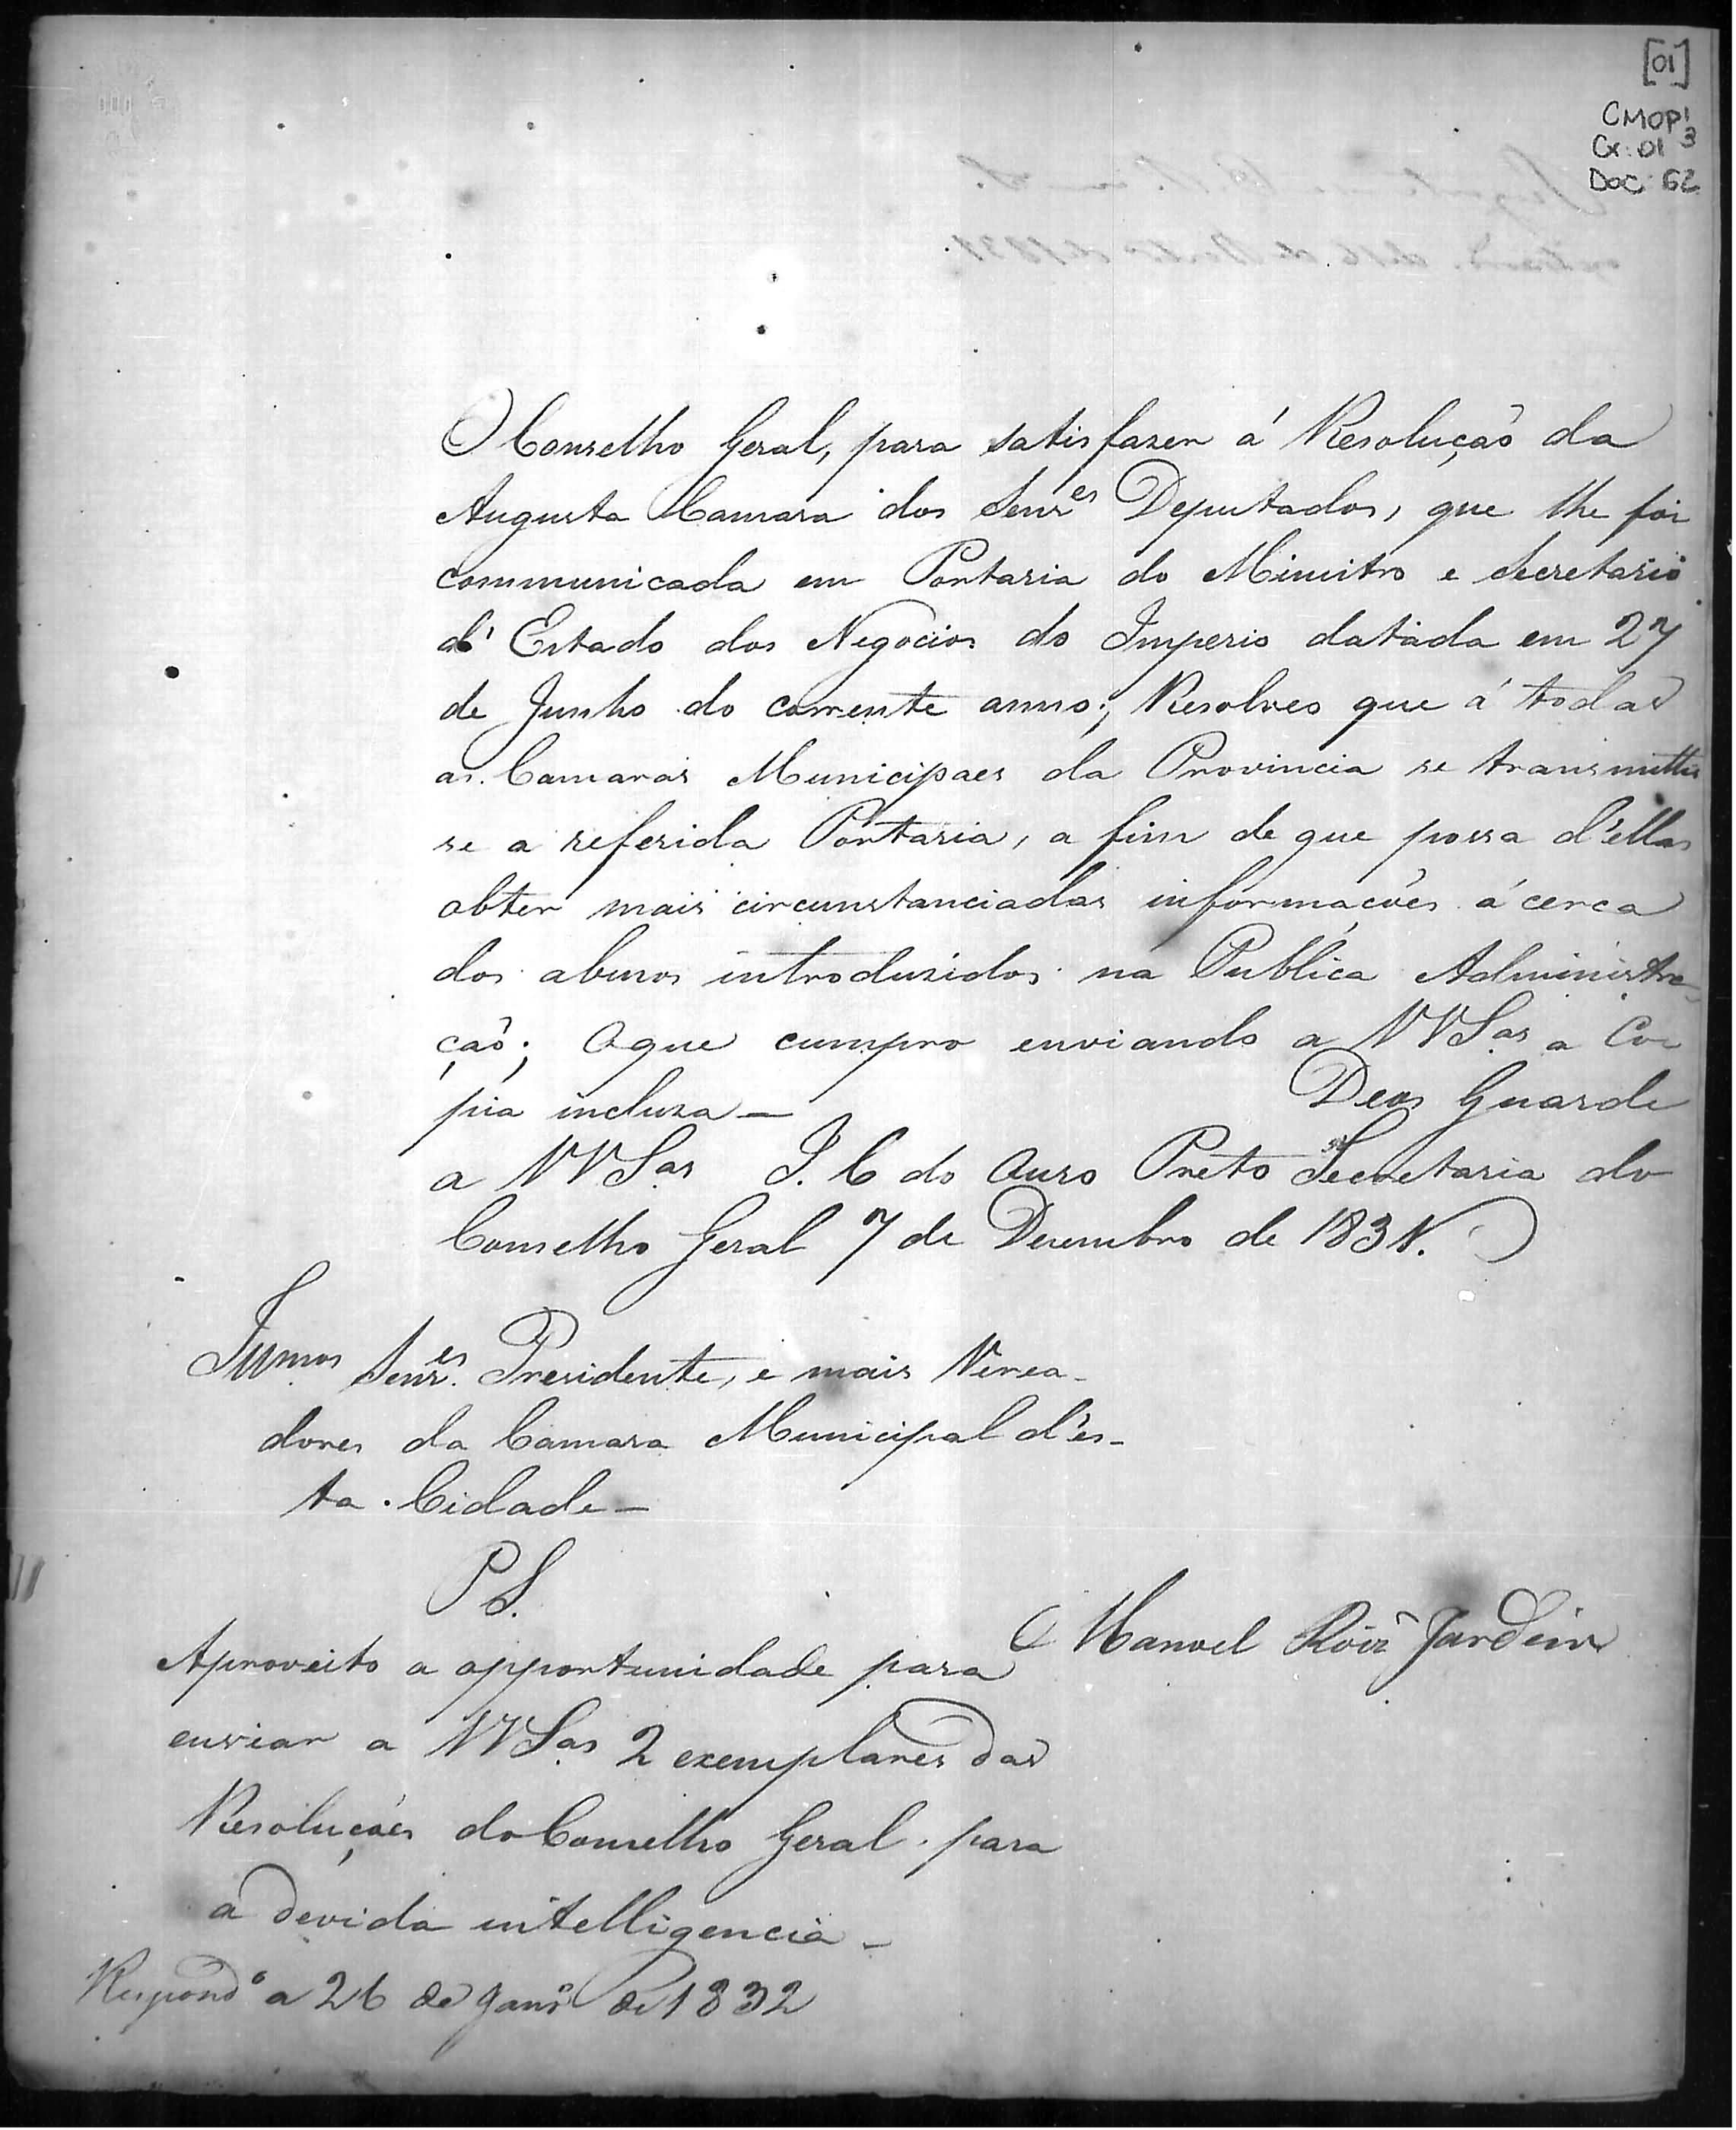 [01]
CMOP
Cx: 01
3
Doc: 62
O Conselho Geral, para satisfazer á Resolução da
Augusta Camara dos Senr.es Deputados, que lhe foi
communicada em Portaria do Ministro e Secretario
d'Estado dos Negocios do Imperio datada em 27
de Junho do corrente anno; Resolveo que á todas
as Camaras Municipaes da Provincia se transmittis
se a referida Portaria, a fim de que possa d'ellas
obter mais circunstanciadas informações á cerca
dos abusos introduzidos na Publica Administra-
ção; O que cumpro enviando a VVSas a Co-
pia inclusa — Deos Guarde
a VVSas I. C do Ouro Preto Secretaria do
Conselho Geral 7 de Dezembro de 1831.
Illmos Senr.es Presidente, e mais Verea-
dores da Camara Municipal d'es-
ta Cidade —
PS.
Manoel Roiz Jardim
Aproveito a opportunidade para
enviar a VVSas 2 exemplares das
Resoluções do Conselho Geral para
a devida intelligencia —
Respondo a 26 de Janro de 1832